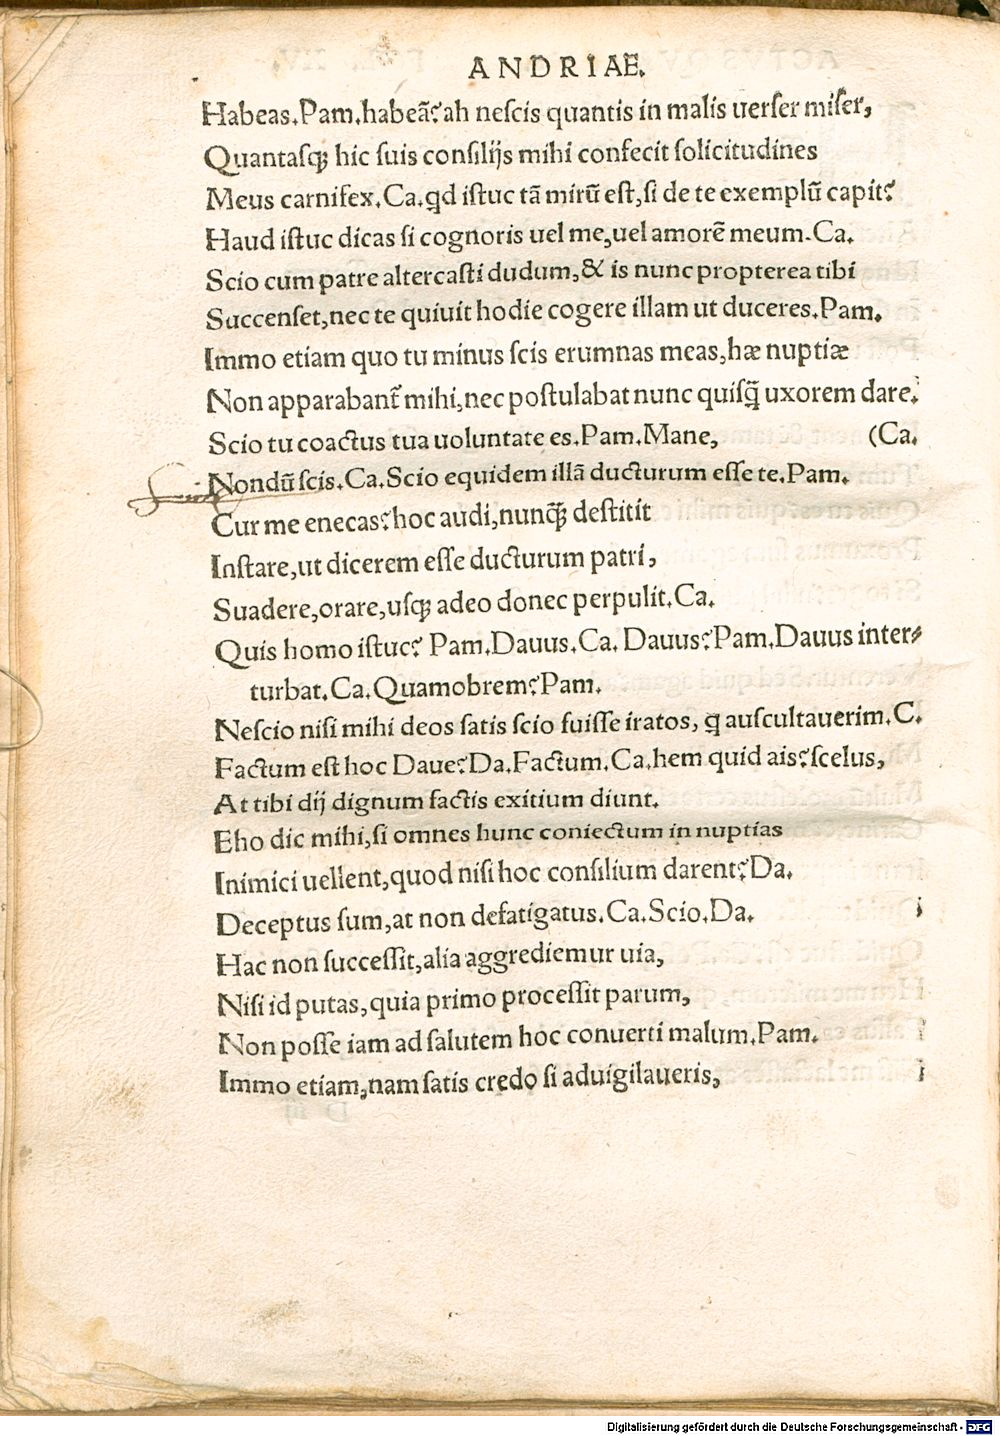 ANDRIAE.
Habeas.Pam.habeã?ah nescis quantis in malis uerser miser,
Quantasq; hic suis consilijs mihi confecit solicitudines
Meus carnifex.Ca.qd istuc tã mirũ est,si de te exemplũ capit?
Haud istuc dicas si cognoris uel me,uel amorẽ meum.Ca.
Scio cum patre altercasti dudum,& is nunc propterea tibi
Succenset,nec te quiuit hodie cogere illam ut duceres.Pam.
Immo etiam quo tu minus scis erumnas meas,hæ nuptiæ
Non apparabant̃ mihi,nec postulabat nunc quisq̃ uxorem dare.
Scio tu coactus tua uoluntate es.Pam.Mane, (Ca.
Nondũ scis.Ca.Scio equidem illã ducturum esse te.Pam.
Cur me enecas?hoc audi,nunq̃ destitit
Instare,ut dicerem esse ducturum patri,
Suadere,orare,usq; adeo donec perpulit.Ca.
Quis homo istuc? Pam.Dauus.Ca. Dauus?Pam.Dauus inter-
turbat.Ca.Quamobrem?Pam.
Nescio nisi mihi deos satis scio fuisse iratos, q auscultauerim.C.
Factum est hoc Daue?Da.Factum.Ca.hem quid ais?scelus,
At tibi dij dignum factis exitium diunt.
Eho dic mihi,si omnes hunc coniectum in nuptias
Inimici uellent,quod nisi hoc consilium darent?Da.
Deceptus sum,at non defatigatus.Ca.Scio.Da.
Hac non successit,alia aggrediemur uia,
Nisi id putas,quia primo processit parum,
Non posse iam ad salutem hoc conuerti malum.Pam.
Immo etiam,nam satis credo si aduigilaueris,
Digitalisierung gefördert durch die Deutsche Forschungsgemeinschaft - DFG